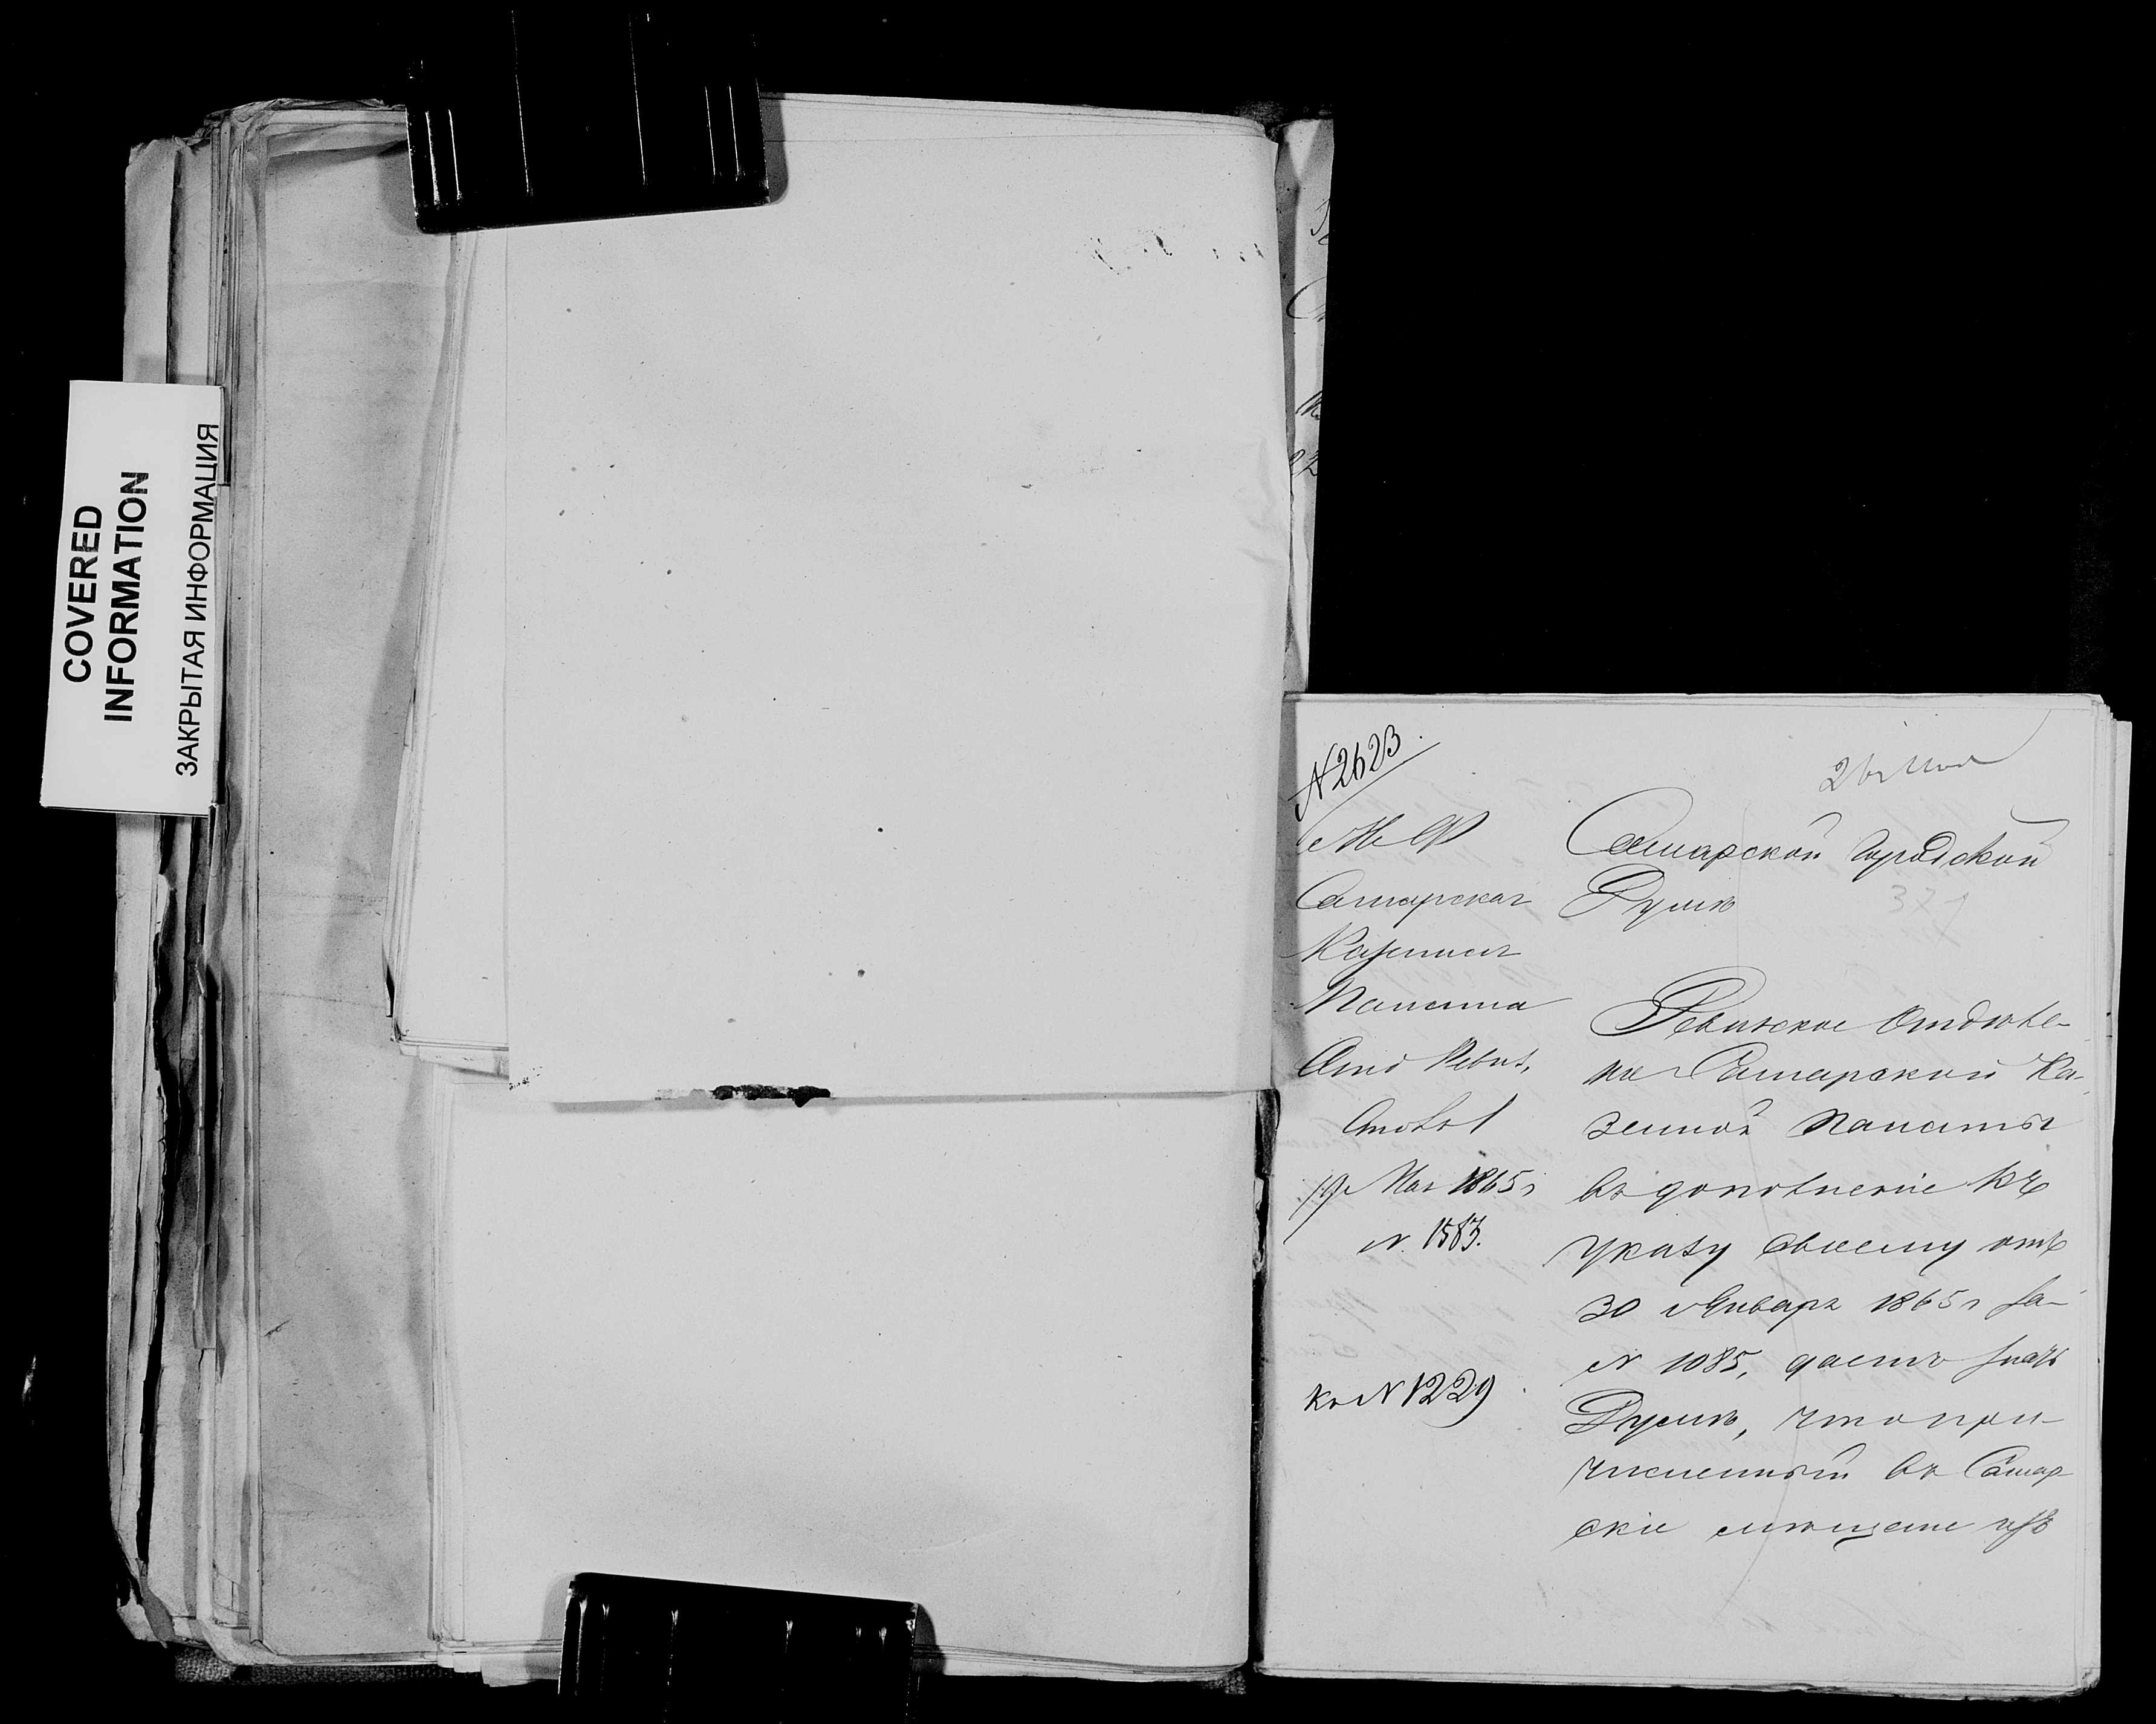 COVERED
INFORMATION
ЗАКРЫТАЯ ИНФОРМАЦИЯ
N 2623.
М Ф
Самарская
Казенная
Палата
Отд Ревиз.
Столъ 1
19 Мая 1865 г
N. 1583.
къ N 1229
26 Мая
Самарской Городской
Думѣ
371
Ревизское Отдѣле-
ніе Самарской Ка-
зенной Палаты
въ дополненіе къ
указу своему отъ
30 Января 1865 г за
N 1085, даетъ знать
Думѣ, что при-
численный въ Самар
скіе мѣщане изъ